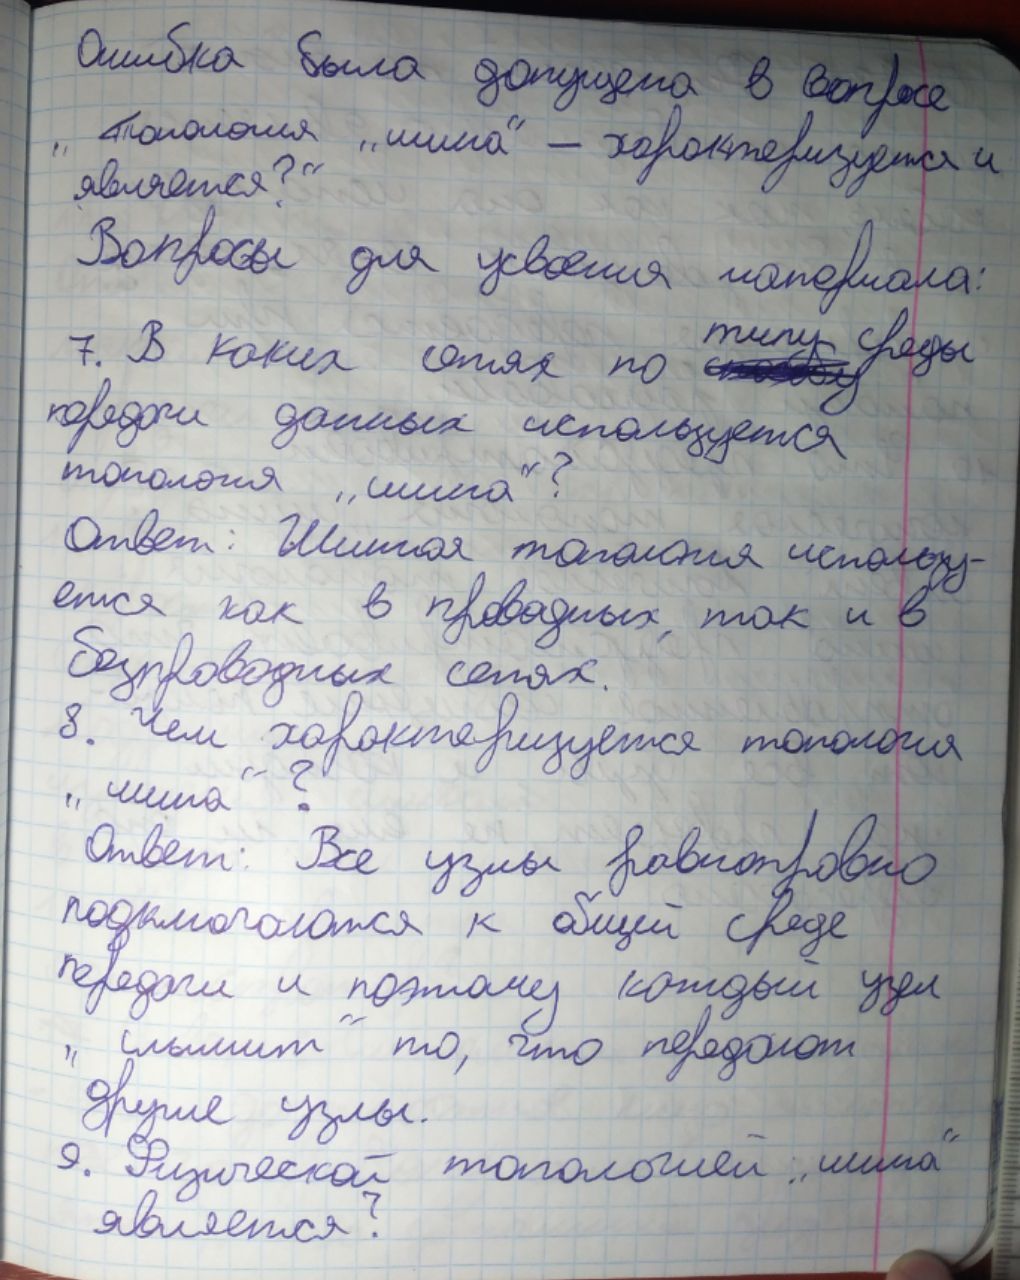 Ошибка была допущена в вопросе
„ Топология „шина“ – характеризуется и
является?“
Вопросы для усвоения материала:
7. В каких сетях по типу среды
передачи данных используется
топология „шина“?
Ответ: Шинная топология использу-
ется как в проводных, так и в
безпроводных сетях.
8. Чем характеризуется топология
„ шина“ ?
Ответ: Все узлы равноправно
подключаются к общей среде
передачи и поэтому каждый узел
„ слышит“ то, что передают
другие узлы.
9. Физической топологией „шина“
является?